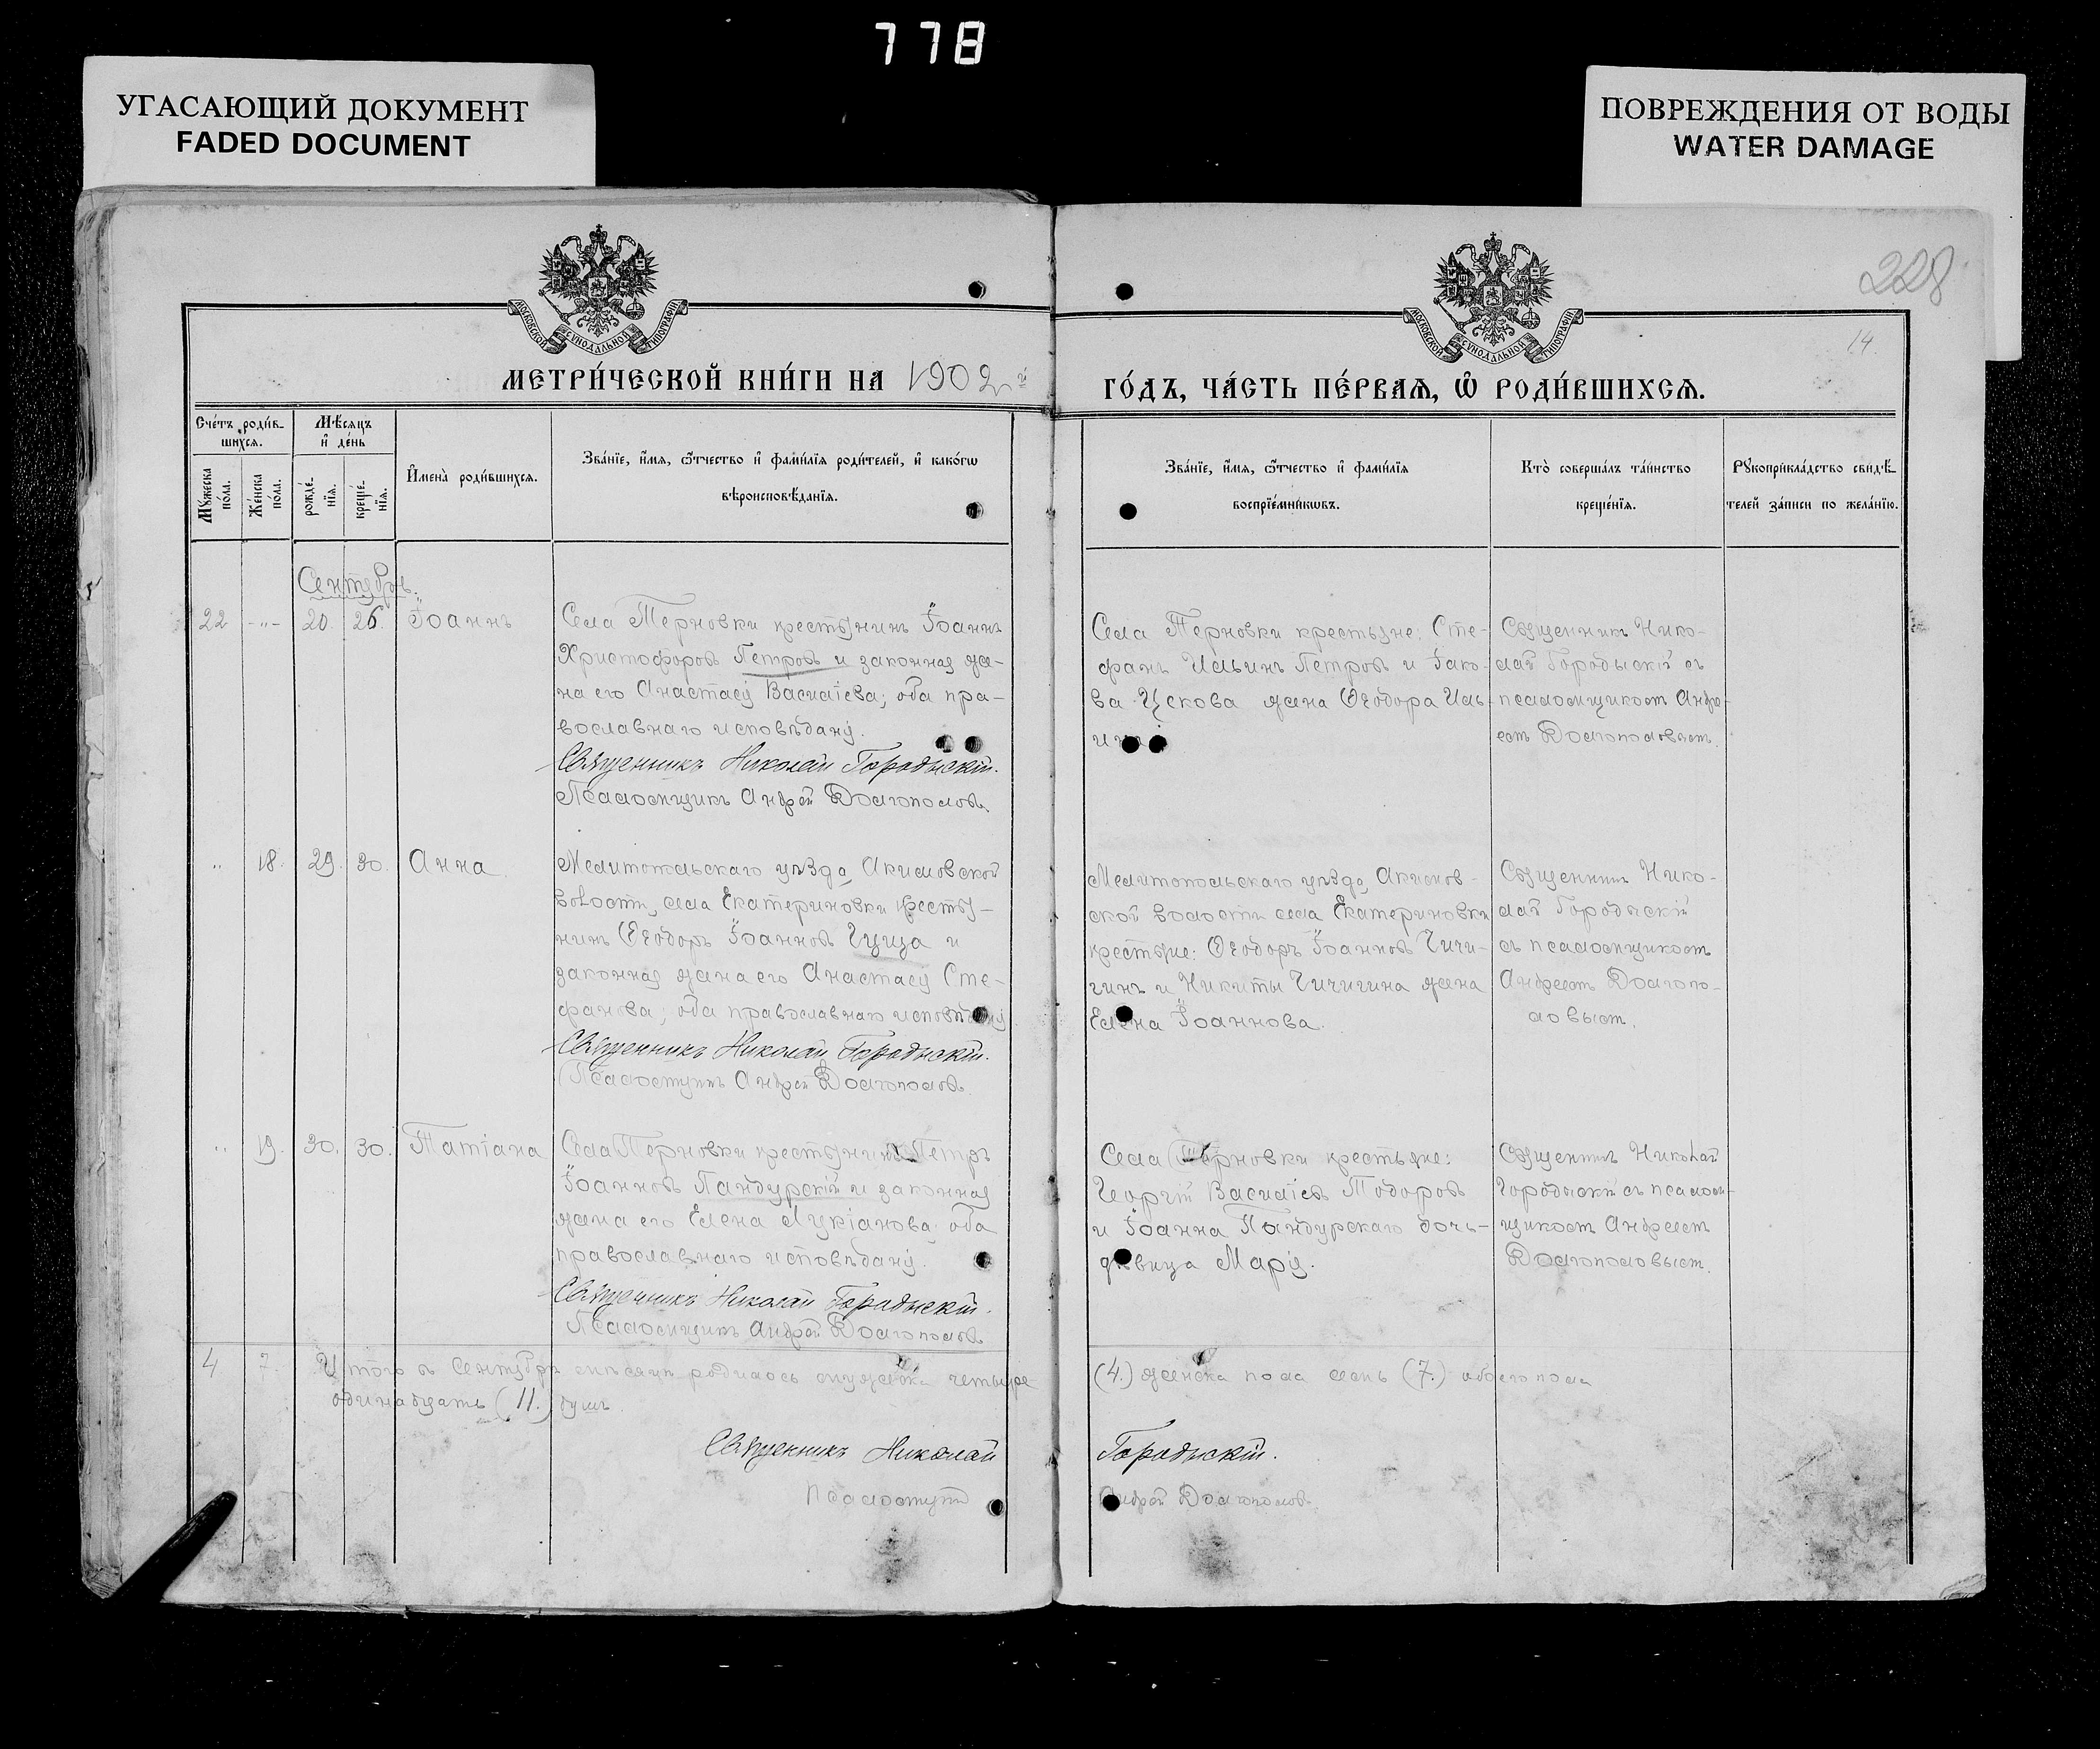 778
УГАСАЮЩИЙ ДОКУМЕНТ
FADED DOCUMENT
ПОВРЕЖДЕНИЯ ОТ ВОДЫ
WATER DAMAGE
228
14
МОСКОВСКОЙ СѴНОДАЛЬНОЙ ТИПОГРАФІИ
МОСКОВСКОЙ СѴНОДАЛЬНОЙ ТИПОГРАФІИ
МЕТРИ́ЧЕСКОЙ КНИ́ГИ НА 1902 й
ГО́ДЪ, ЧА́СТЬ ПЕ́РВАѦ, Ѡ РОДИ́ВШИХСѦ.
Сче́тъ роди́в-
шихсѧ.
Мѣ́сѧцъ
и де́нь
Мꙋ́жеска
по́ла.
Же́нска
по́ла.
рожде́-
нїѧ.
креще́-
нїѧ.
Имена̀ роди́вшихсѧ.
Зва́нїе, и́мѧ, ѻ́тчество и фами́лїѧ роди́телей, и како́гѡ
вѣроисповѣ́данїѧ.
Зва́нїе, и́мѧ, ѻ́тчество и фами́лїѧ
воспрїе́мникѡвъ.
Кто̀ соверша́лъ та́инство
креще́нїѧ.
Рꙋкоприкла́дство свидѣ́-
телей за́писи по жела́нїю.
Сентябрь.
22 -"- 20. 26. Іоаннъ
Села Терновки крестьянинъ Іоаннъ
Христофоровъ Петровъ и законная же-
на его Анастасія Василіева; оба пра-
вославнаго исповѣданія.
Священникъ Николай Городыскій.
Псаломщикъ Андрей Долгополовъ
Села Терновки крестьяне: Сте-
фанъ Ильинъ Петровъ и Іако-
ва Цекова жена Ѳеодора Иль-
Священникъ Нико-
лай Городыскій съ
псаломщикомъ Андре-
емъ Долгополовымъ.
" 18. 29. 30. Анна
Мелитопольскаго уѣзда, Акимовской
волости, села Екатериновки кресть-
нинъ Ѳеодоръ Іоанновъ Гуцза и
законная жена его Анастасія Сте-
фанова; оба православнаго исповѣданія
Священникъ Николай Городыскій.
Псаломщикъ Андрей Долгополовъ
Мелитопольскаго уѣзда, Акимов-
ской волости села Екатериновки
крестьяне: Ѳеодоръ Іоанновъ Чичи-
гинъ и Никиты Чичигина жена
Елена Іоаннова.
Священникъ Нико-
лай Городыскій
съ псаломщикомъ
Андреемъ Долгопо-
ловымъ.
" 19. 30. 30. Татіана
Села Терновки крестьянинъ Петръ
Іоанновъ Пандурскій и законная
жена его Елена Лукіанова; оба
православнаго исповѣданія.
Священникъ Николай Городыскій.
Псаломщикъ Андрей Долгополовъ
Села Терновки крестьяне:
Георгій Василіевъ Тодоровъ
и Іоанна Пандурскаго дочь-
дѣвица Марія.
Священникъ Николай
Городыскій съ псалом-
щикомъ Андреемъ
Долгополовымъ.
4 7. Итого въ Сентябрѣ мѣсяцѣ родилось мужеска четыре
(4.) женска пола семь (7.) обоего пола
одинадцать (11.) душъ.
Священникъ Николай
Городыскій.
Псаломщикъ
Андрей Долгополовъ.